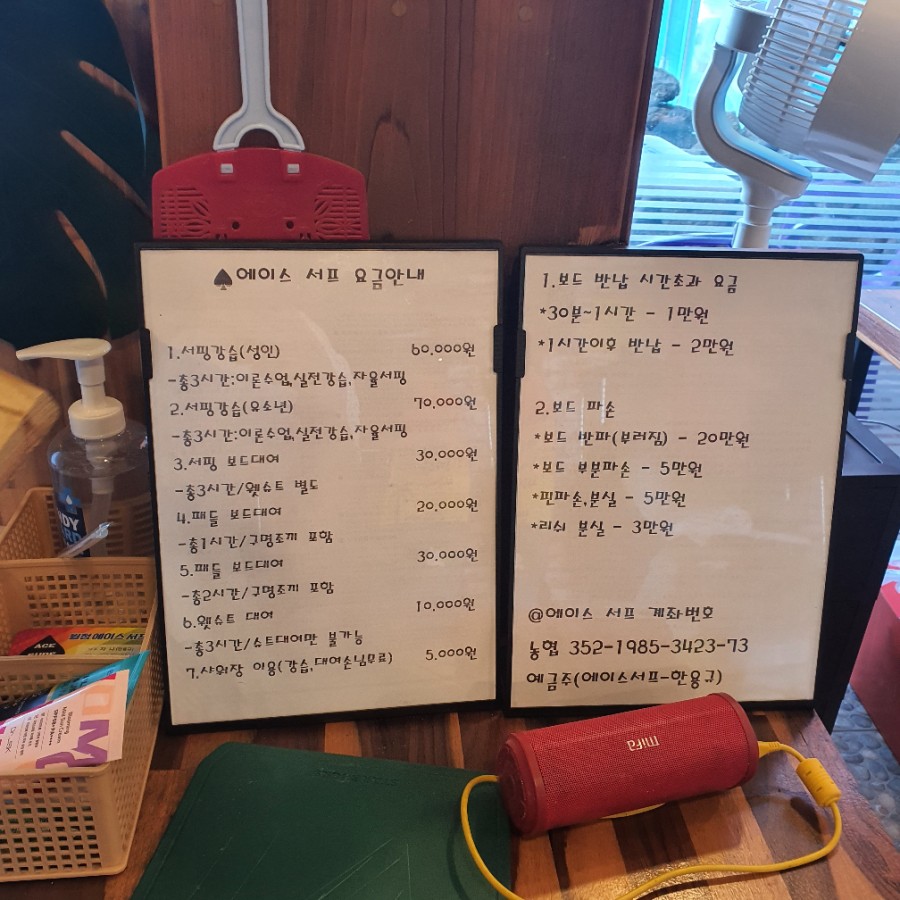 ♠에이스 서프 요금안내
1.서핑강습(성인) 60.000원
-총3시간:이론수업,실전강습,자율서핑
2.서핑강습(유소년) 70.000원
-총3시간:이론수업,실전강습,자율서핑
3.서핑 보드대여 30.000원
-총3시간/웻슈트 별도
4.패들 보드대여 20.000원
-총1시간/구명조끼 포함
5.패들 보드대여 30.000원
-총2시간/구명조끼 포함
6.웻슈트 대여 10.000원
-총3시간/슈트대여만 불가능
7.샤워장 이용(강습,대여손님무료) 5.000원
1.보드 반납 시간초과 요금
*30분~1시간 - 1만원
*1시간이후 반납 - 2만원
2.보드 파손
*보드 반파(부러짐) - 20만원
*보드 부분파손 - 5만원
*핀파손,분실 - 5만원
*리쉬 분실 - 3만원
@에이스 서프 계좌번호
농협 352-1985-3423-73
예금주(에이스서프-한용규)
mifa
ACE